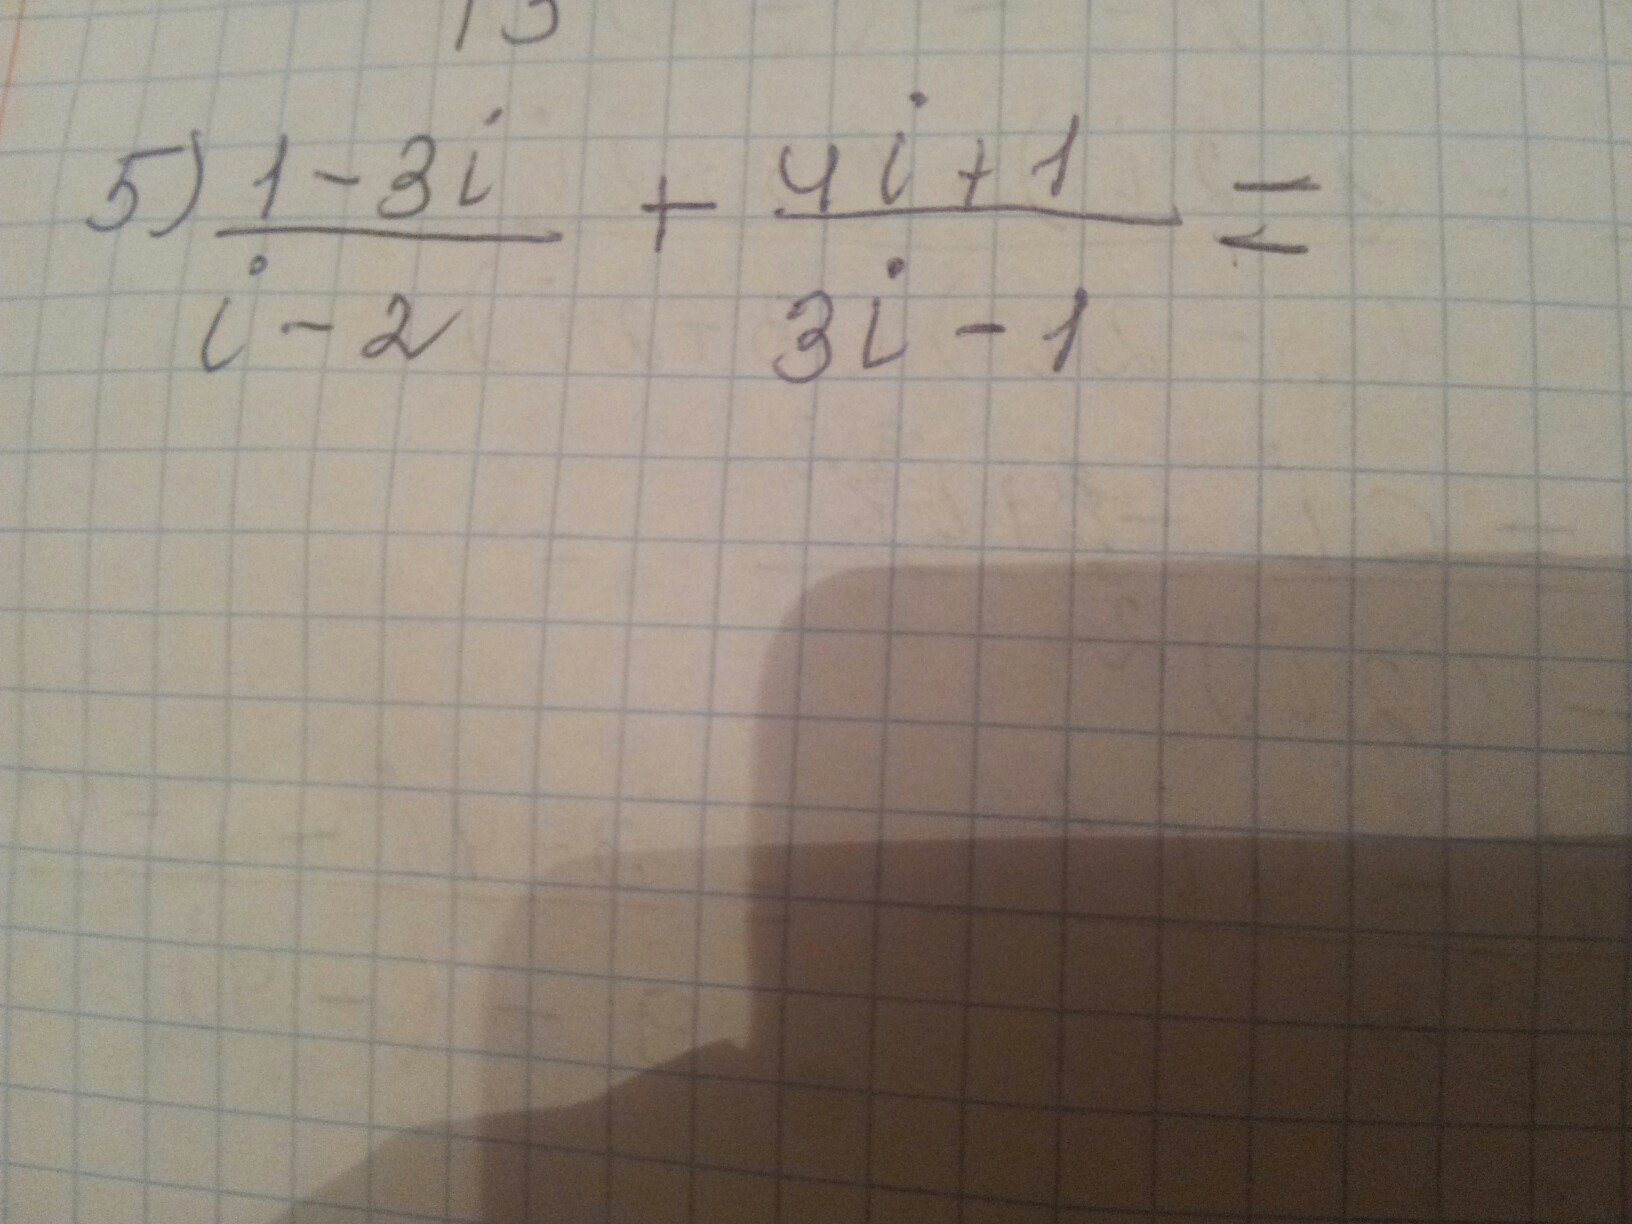 5) 1-3i / i-2 + 4i+1 / 3i-1 =